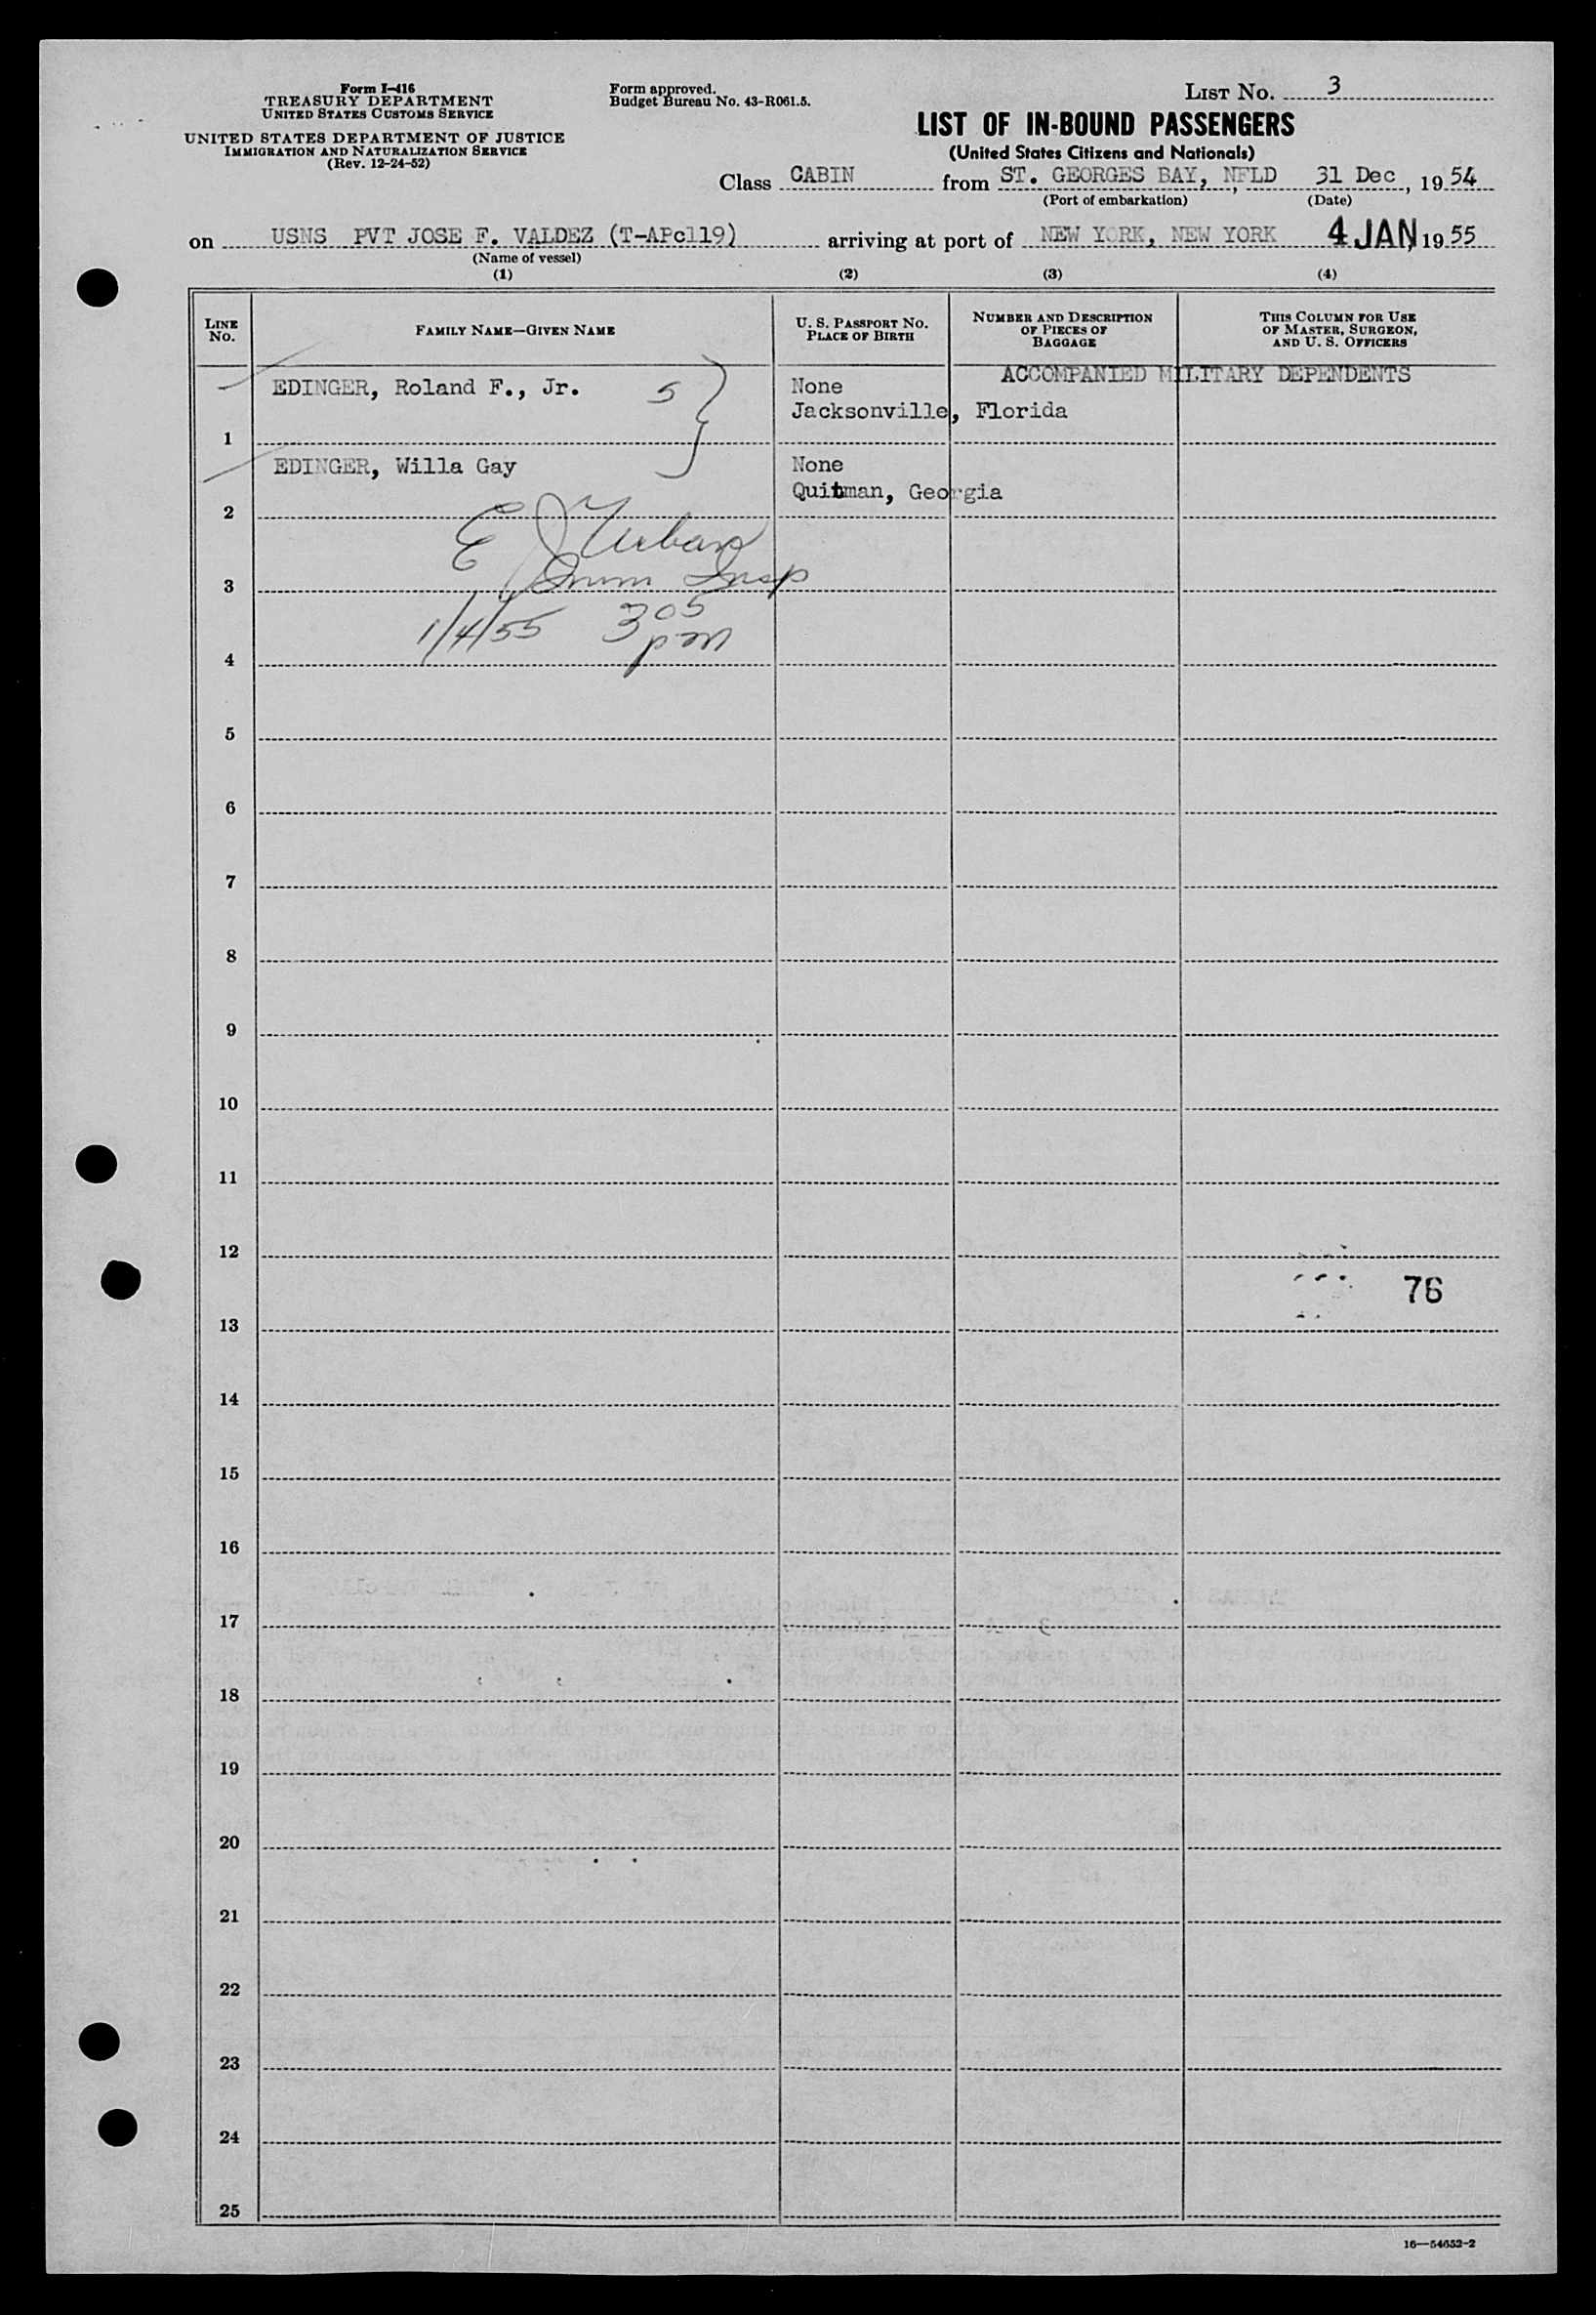 Form I-416
TREASURY DEPARTMENT
UNITED STATES CUSTOMS SERVICE
UNITED STATES DEPARTMENT OF JUSTICE
IMMIGRATION AND NATURALIZATION SERVICE
(Rev. 12-24-52)
Form approved.
Budget Bureau No. 43-R061.5.
LIST No. 3
LIST OF IN-BOUND PASSENGERS
(United States Citizens and Nationals)
Class CABIN from ST. GEORGES BAY, NFLD 31 Dec, 1954
(Port of embarkation) (Date)
on USNS PVT JOSE F. VALDEZ (T-APc119) arriving at port of NEW YORK, NEW YORK 4 JAN, 1955
(Name of vessel)
(1) (2) (3) (4)
LINE No. FAMILY NAME—GIVEN NAME U. S. PASSPORT No. PLACE OF BIRTH NUMBER AND DESCRIPTION OF PIECES OF BAGGAGE THIS COLUMN FOR USE OF MASTER, SURGEON, AND U. S. OFFICERS
ACCOMPANIED MILITARY DEPENDENTS
EDINGER, Roland F., Jr. 5 None
Jacksonville, Florida
1
EDINGER, Willa Gay None
Quitman, Georgia
2
E J Urban
Imm Insp
3
1/4/55 305
pm
4
5
6
7
8
9
10
11
12
76
13
14
15
16
17
18
19
20
21
22
23
24
25
16—54652-2